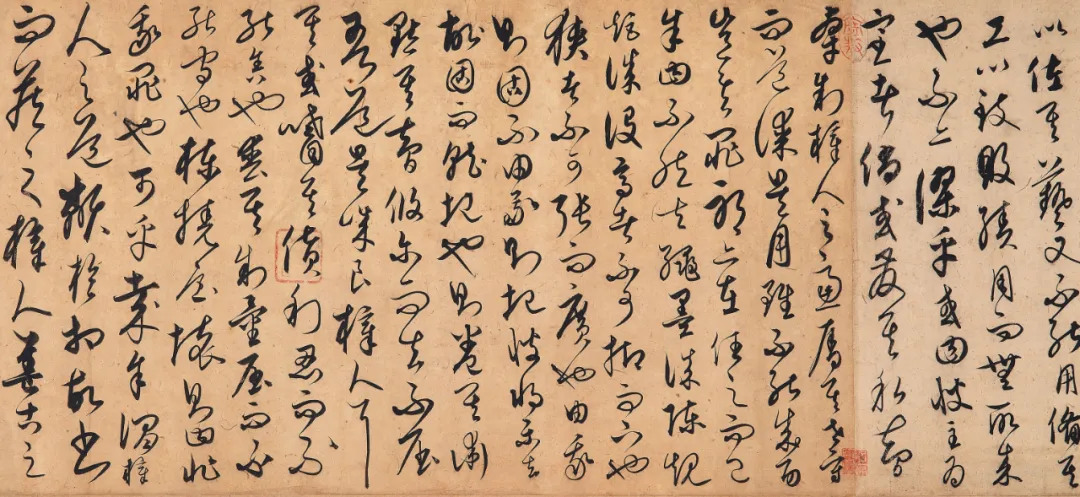 以佐其藝又不能用備其
工以致敗績用而無所成
也不亦謬乎或曰彼主為
室者儻或發其私智
牽制梓人之慮奪其世守
而道謀是用雖不能成功
豈其罪耶亦在任之而已
余曰不然夫繩墨誠陳規
矩誠設高者不可抑而下也
狹者不可張而廣也由我
則固不由我則圮彼將樂去
固而就圮也則卷其術
默其智悠爾而去不屈
吾道是誠良梓人耳
其或嗜其貨利忍而不
能舍也喪其制量屈而不
能守也棟橈屋壞則曰非
我罪也可乎哉余謂梓
人之道類於相故書
而藏之梓人蓋古之